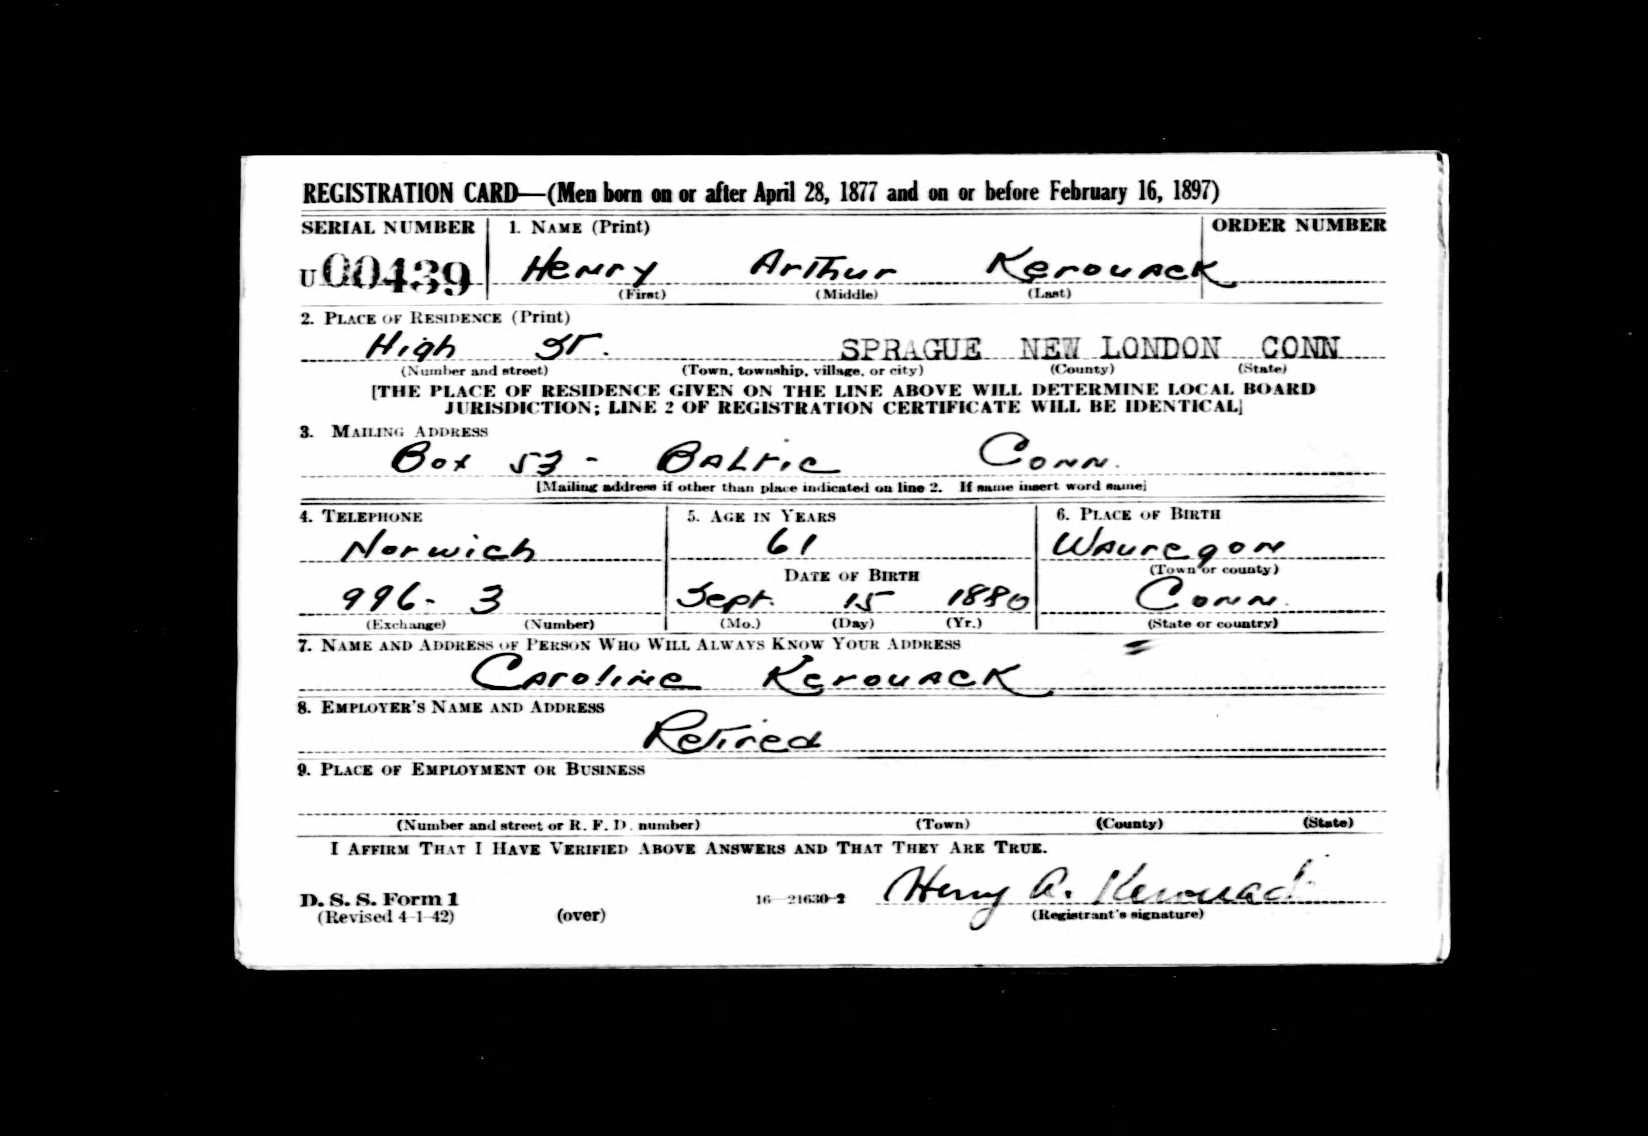 REGISTRATION CARD—(Men born on or after April 28, 1877 and on or before February 16, 1897)
SERIAL NUMBER 1. NAME (Print) ORDER NUMBER
U00439 Henry Arthur Kerouack
(First) (Middle) (Last)
2. PLACE OF RESIDENCE (Print)
High ST. SPRAGUE NEW LONDON CONN
(Number and street) (Town, township, village, or city) (County) (State)
[THE PLACE OF RESIDENCE GIVEN ON THE LINE ABOVE WILL DETERMINE LOCAL BOARD
JURISDICTION; LINE 2 OF REGISTRATION CERTIFICATE WILL BE IDENTICAL]
3. MAILING ADDRESS
Box 53 - Baltic Conn.
[Mailing address if other than place indicated on line 2. If same insert word same]
4. TELEPHONE 5. AGE IN YEARS 6. PLACE OF BIRTH
Norwich 61 Wauregon
DATE OF BIRTH (Town or county)
996- 3 Sept. 15 1880 Conn.
(Exchange) (Number) (Mo.) (Day) (Yr.) (State or country)
7. NAME AND ADDRESS OF PERSON WHO WILL ALWAYS KNOW YOUR ADDRESS
Caroline Kerouack
8. EMPLOYER'S NAME AND ADDRESS
Retired
9. PLACE OF EMPLOYMENT OR BUSINESS
(Number and street or R. F. D. number) (Town) (County) (State)
I AFFIRM THAT I HAVE VERIFIED ABOVE ANSWERS AND THAT THEY ARE TRUE.
D. S. S. Form 1 16—21630-2 Henry A. Kerouack
(Revised 4-1-42) (over) (Registrant's signature)